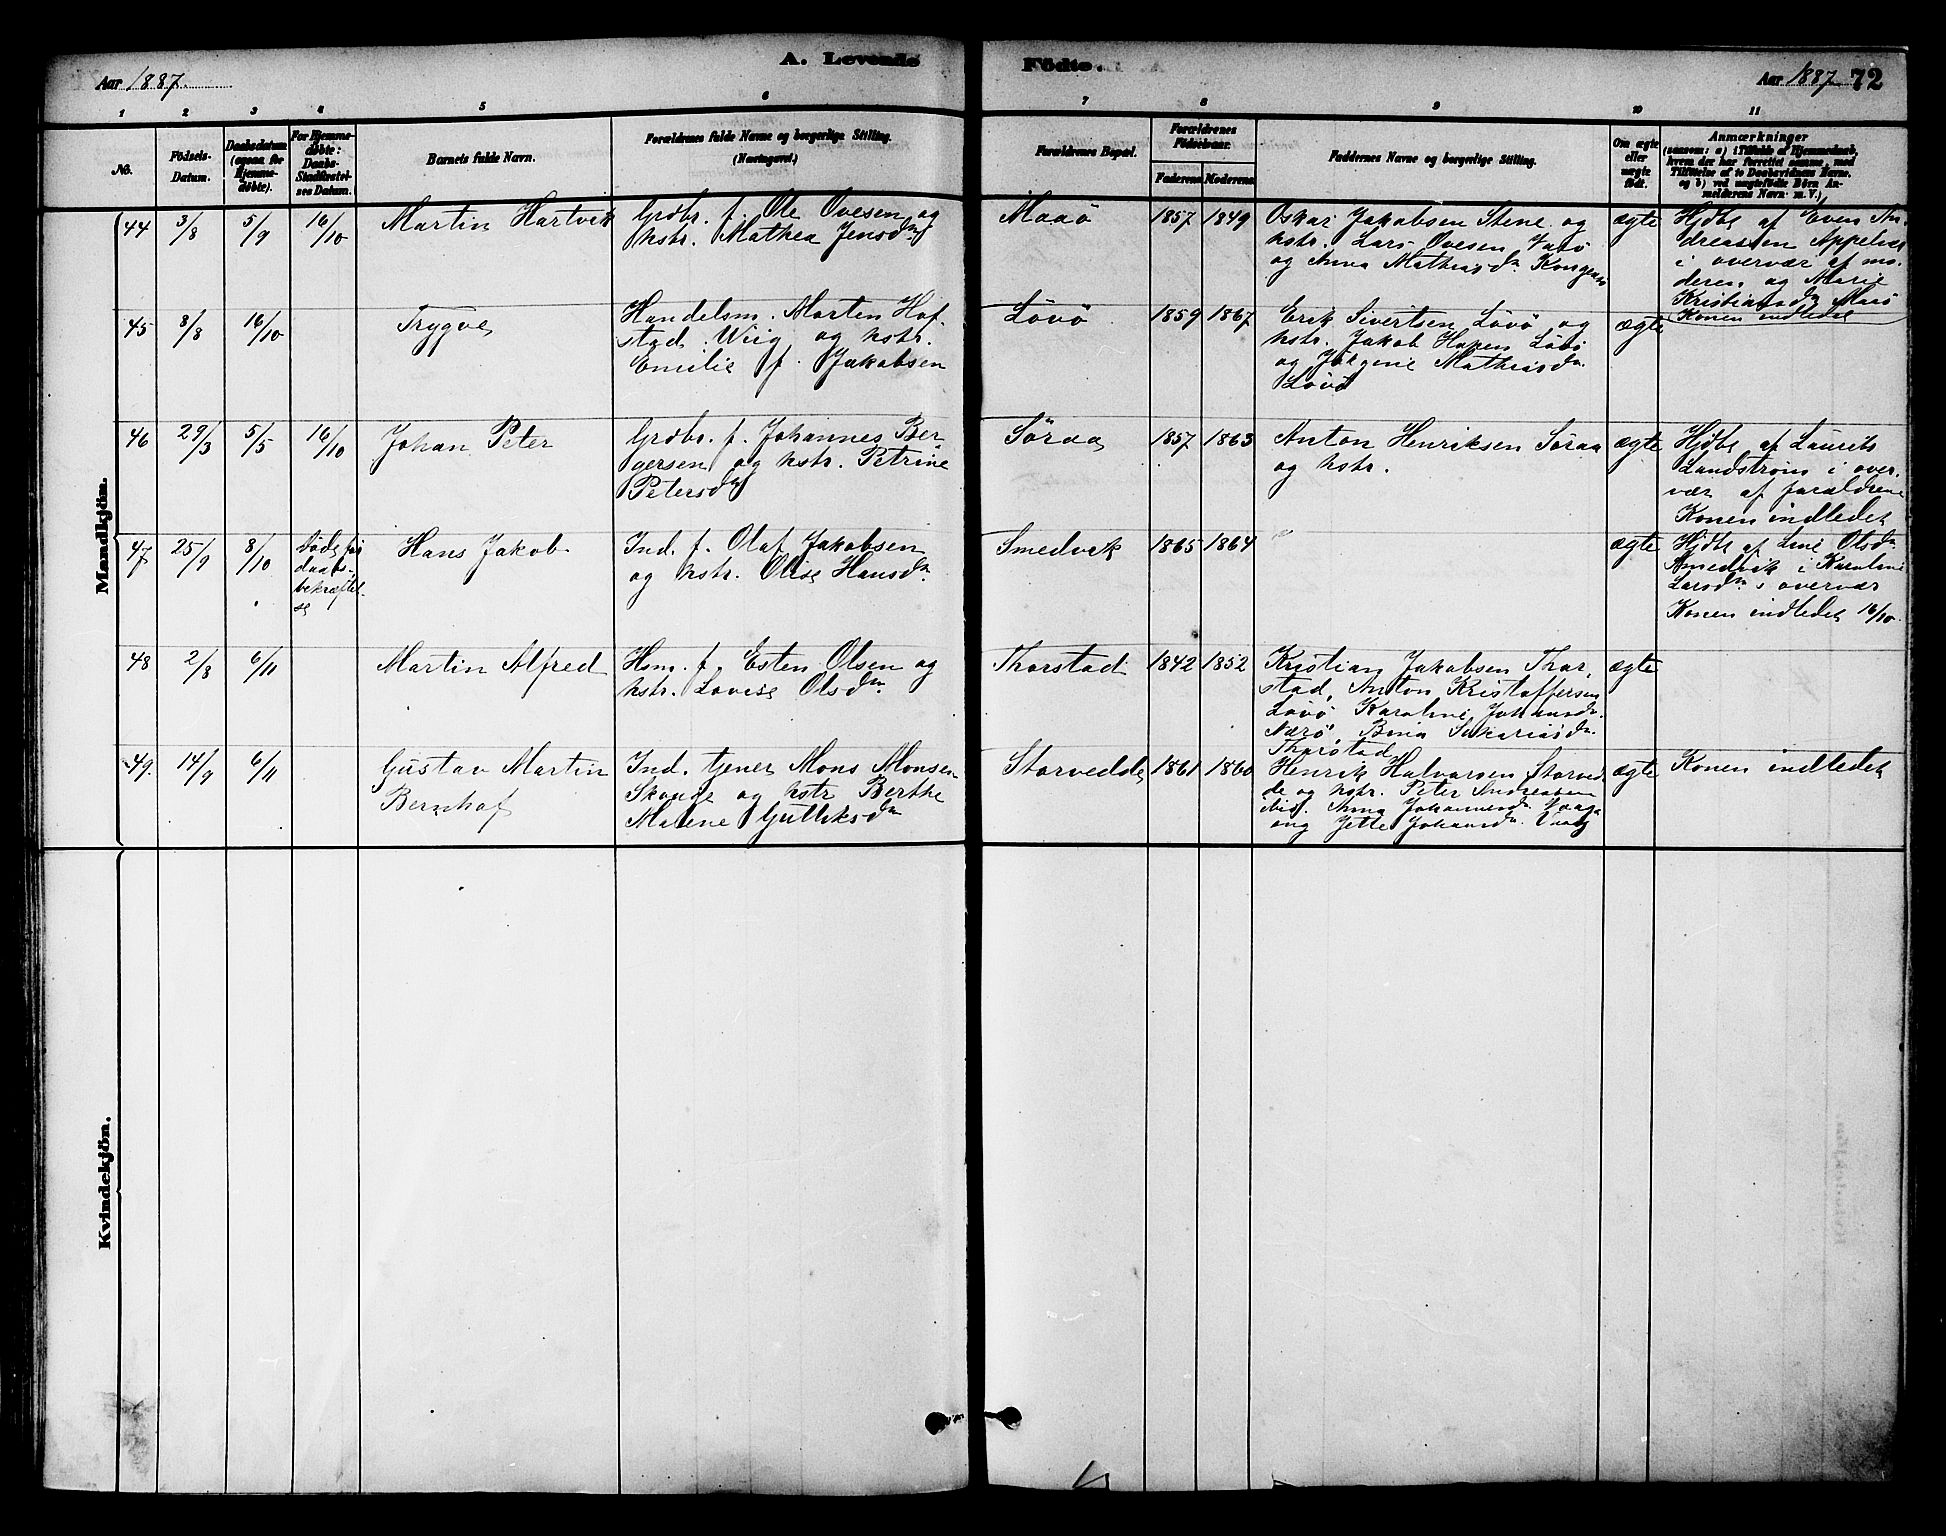 Aar 1887.
A. Levende
Födte.
Aar 1887 72
1 2 3 4 5 6 7 8 9 10 11
No.
Födsels-
Datum.
Daabsdatum
(ogsaa for
Hjemme-
döbte).
For Hjemme-
döbte:
Daabs-
Stadfæstel-
ses Datum.
Barnets fulde Navn.
Forældrenes fulde Navne og borgerlige Stilling.
(Næringsvei.)
Forældrenes Bopæl.
Forældrenes
Födselsaar.
Faderens Moderens
Faddernes Navne og borgerlige Stilling.
Om ægte
eller
uægte
født.
Anmærkninger
(saasom: a) i Tilfælde af Hjemmedaab,
hvem der har forrettet samme, med
Tilföielse af to Daabsvidners Navne,
og b) ved uægtefödte Börn An-
melderens Navn m. V.)
Mandkjön.
44 3/8 5/9 16/10 Martin Hartvik
Grdbr. f. Ole Ovesen og
hstr. Mathea Jensdn
Maaö 1857 1849
Oskar Jakobsen Stene og
hstr. Lars Ovesen
og Anna Mathiasdn.
ægte
Hjdbt af Even An-
dreassen
i overvær af mo-
deren, og Marie
Kristiansdn Maaö
Konen indledet
45 8/8 16/10 Trygve
Handelsm. Morten Hof-
stad Wiig og hstr.
Emilie f. Jakobsen
Lövö 1859 1867
Erik Sivertsen Lövö og
hstr. Jakob Hansen Lövö
og Mathiasdn.
Lövö
ægte
46 29/3 5/5 16/10 Johan Peter
Grdbr. f. Johannes Ber-
gersen og hstr. Petrine
Petersdn
Söraa 1857 1863
Anton Henriksen Söraa
og hstr.
ægte
Hjdbt af Laurits
Landstrøm i over-
vær af forældrene
Konen indledet
47 25/9 8/10 Döde för
daabs-
bekræftel-
se
Hans Jakob
Ind. f. Olaf Jakobsen
og hstr. Olise Hansdn.
Smedvik 1865 1864 "
ægte
Hjdbt af Line Olsdn
Smedvik i Karoline
Larsdn.s overvær
Konen indledet 16/10.
48 2/8 6/11 Martin Alfred
Hsm. f. Esten Olsen og
hstr. Lovise Olsdn.
Thorstad 1842 1852
Kristian Jakobsen Thor-
stad, Anton Kristoffersen
Lövö Karoline Johansdn.
Nærö, Bina Sakariasdn.
Thorstad
ægte
49. 14/9 6/11 Gustav Martin
Bernhof
Ind. tjener Mons Monsen
Skauge og hstr Berthe
Malene Gulliksdn
Storvedde 1861 1860
Henrik Halvorsen Storved-
de og hstr. Peter Andreassen
ibid. Anna Johannesdn.
og Jette Johansdn.
ægte Konen indledet
Kvindekjön.